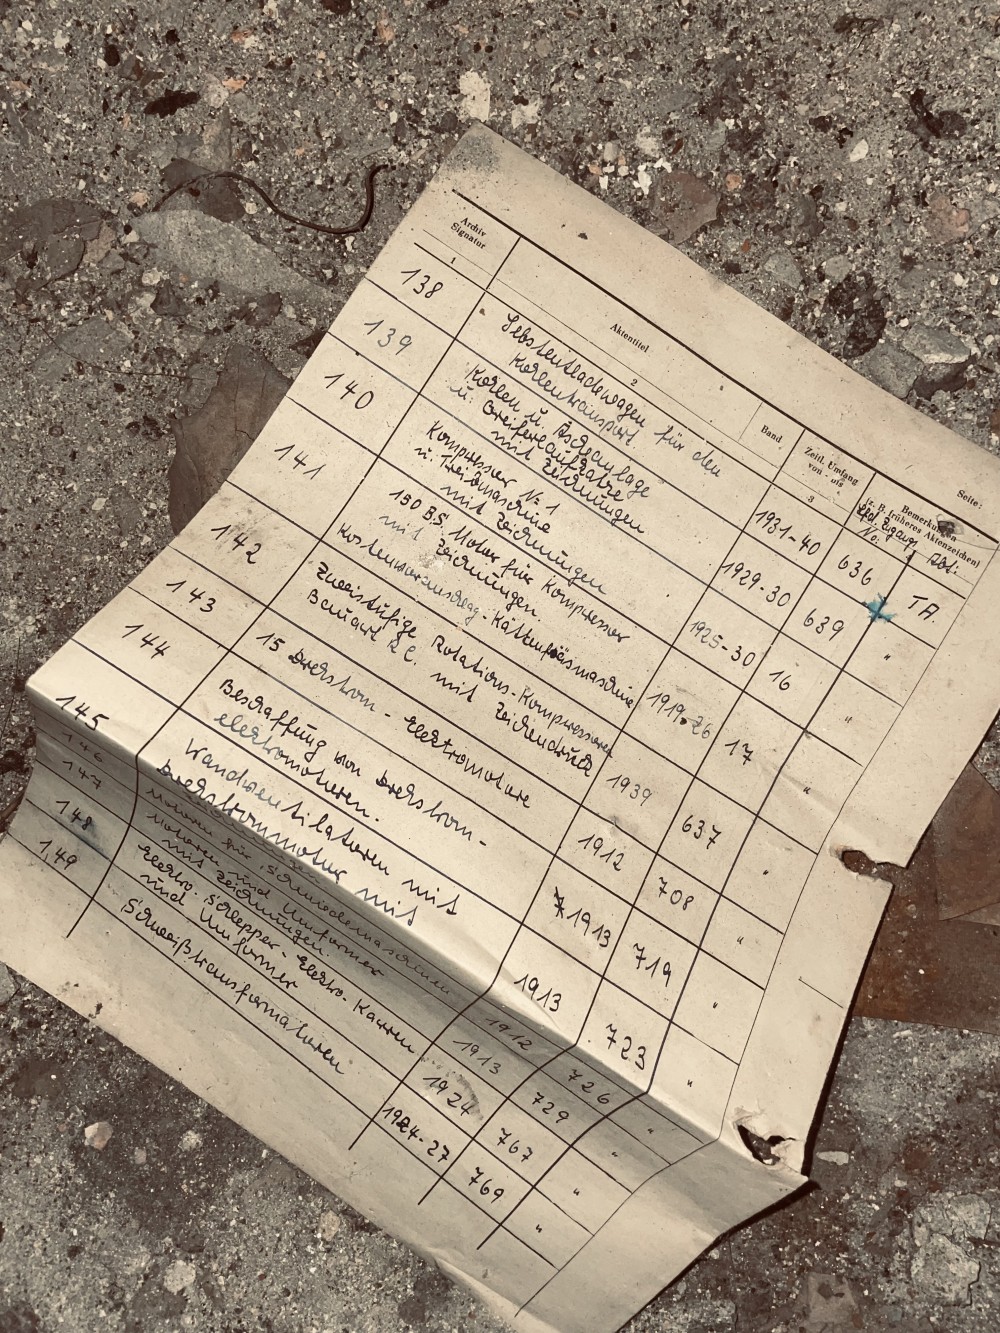 Archiv Signatur
Aktentitel
Band
Zeitl. Umfang
von - bis
Bemerkungen
(z. B. früheres Aktenzeichen)
Seite:
No: Abt:
1 2 3
138 Selbstentladewagen für den
Kohlentransport 1931-40 636 TA.
139 Kohlen u. Aschanlage
u. Greiferaufsätze
mit Zeichnungen 1929-30 639 "
140 Kompressor No 1
u. Treibmaschine
mit Zeichnungen 1925-30 16 "
141 150 BS. Motor für Kompressor
mit Zeichnungen.
Kostenvoranschlag - 1919-26 17 "
142 Zweistufige Rotations-Kompressoren
Bauart R.C. mit Zeichendruck 1939 637 "
143 15 Drehstrom-Elektromotore 1912 708 "
144 Beschaffung von Drehstrom-
elektromotoren. 1913 719 "
145 Wandventilatoren mit
Drehstrommotor mit 1913 723 "
146 Motoren für Schmiedemaschinen 1912 726 "
147 Motoren und Umformer
mit Zeichnungen. 1913 729 "
148 Elektro. Schlepper-Elektro-Karren
und Umformer 1924 767 "
149 Schweißtransformatoren 1924-27 769 "